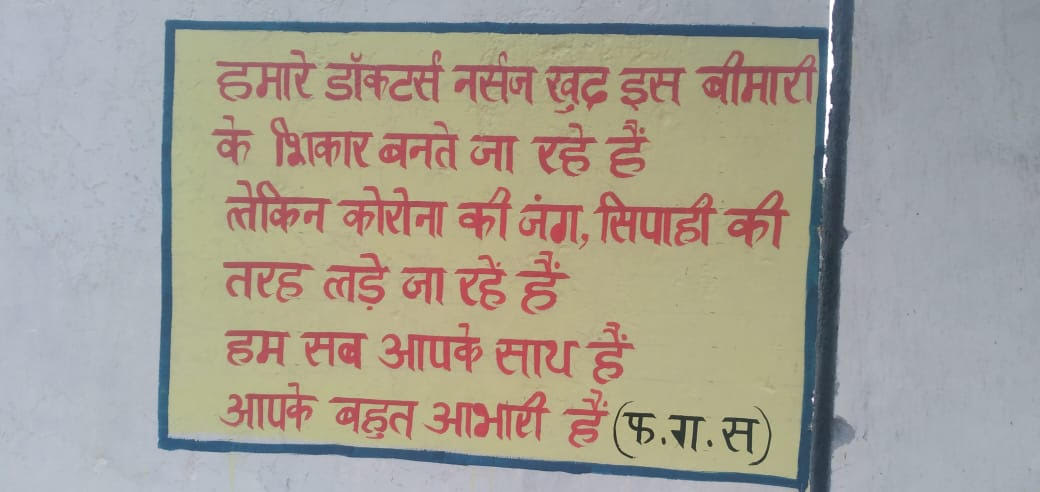 हमारे डॉक्टर्स नर्सज खुद इस बीमारी
के शिकार बनते जा रहे हैं
लेकिन कोरोना की जंग, सिपाही की
तरह लड़े जा रहें हैं
हम सब आपके साथ हैं
आपके बहुत आभारी हैं (फ.ग.स)